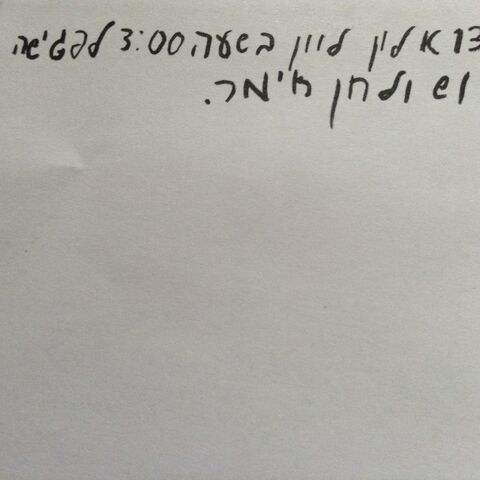 אלין לוין בשעה 3:00 לפגישה
ושולחן